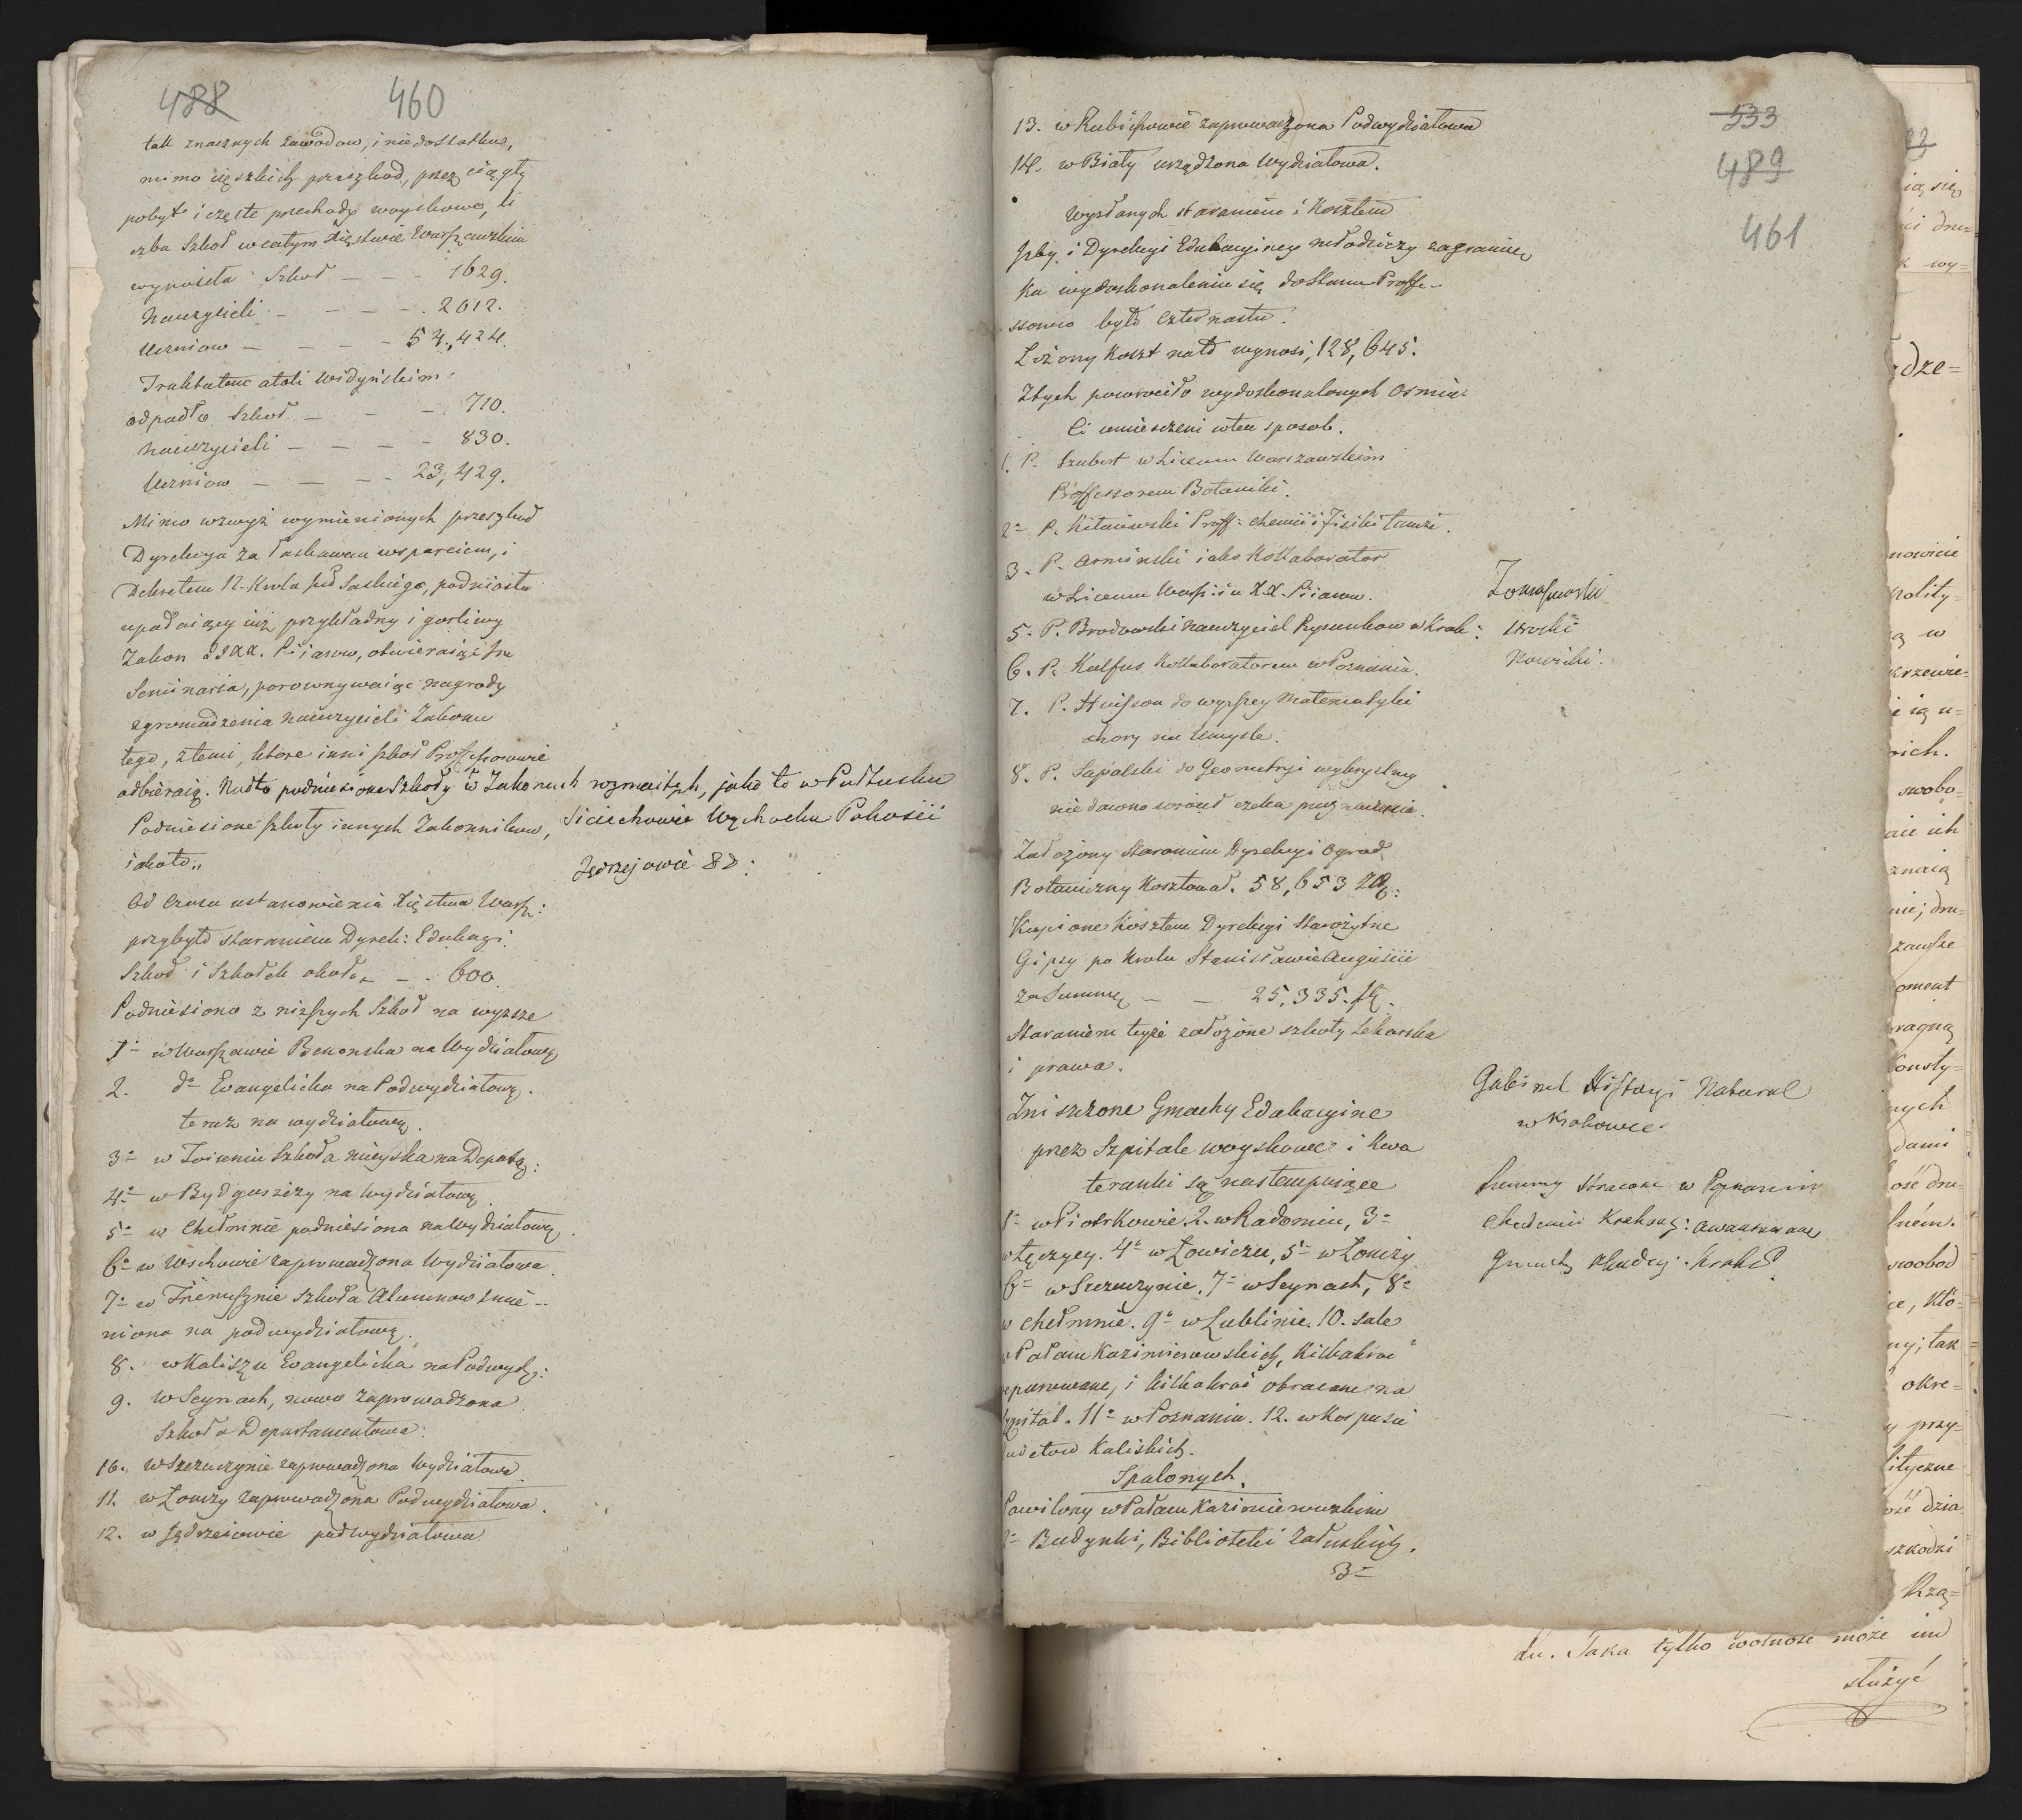 488 460
tak znacznych zawodow, i niedostatku,
mimo cięszkich przeszkod, przez ciągły
pobyt i częste przechody woyskowe, li
czba Szkoł w całym Xięstwie Warszawskim
wynosiła Szkoł — — - 1629.
Nauczycieli - — — - . 2012.
Uczniow — — — - 53,424.
Traktatem atoli Widyńskim
odpadło Szkoł — — — . 710.
Nauczycieli — — — - 830.
Uczniow — — — - 23,429.
Mimo wzwyż wymienionych przeszkod
Dyrekcya za łaskawem wsparciem, i
Dekretem N. Krola Saskiego, podniosła
upadaiący iuż przykładny i gorliwy
Zakon XX. Piiarow, otwieraiąc im
Seminaria, porownywaiąc nagrody
zgromadzenia nauczycieli Zakonu
tego, z temi, ktore inni szkoł Proffessorowie
odbieraią. Nadto podniesione Szkoły w Zakonach rozmaitych, jako to w Pułtusku
Podniesione szkoły innych Zakonnikow, Sieciechowie Wąchocku Pakości
iakoto,,
Jędrzejowie &:
Od czasu ustanowienia Xięstwa Warsz:
przybyło staraniem Dyrek: Edukacyi
Szkoł i Szkołek około — - . 600.
Podniesiono z niższych Szkoł na wyższe
1- w Warszawie na Wydziałową
2. do Evangelicka na Podwydziałową.
teraz na wydziałową.
3- w Toruniu Szkoła mieyska na Depart:
4- w Bydgoszczy na Wydziałową.
5- w Chełmnie podniesiona na Wydziałową.
6- w Wschowie zaprowadzona Wydziałowa
7- w Trzemesznie Szkoła Alumnow zmie-
niona na podwydziałową.
8. w Kaliszu Evangelicka na Podwydz:
9. w Seynach, nowo zaprowadzona
Szkoła Departamentowa.
10. w Szczuczynie zaprowadzona Wydziałowa.
11. w Łomży zaprowadzona Podwydziałowa.
12. w Jędrzeiowie podwydziałowa
533
489
461
13. w Rubiszowie zaprowadzona Podwydziałowa
14. w Biały urządzona Wydziałowa.
Wysłanych staraniem i Kosztem
Izby i Dyrekcyi Edukacyiney młodzieży zagranicę
ku wydoskonaleniu się do stanu Proffe-
ssorow było czternastu.
Łożony Koszt na to wynosi, 128,645.
Z tych powrociło wydoskonalonych osmiu
Ci umieszczeni w ten sposob.
1. P. Szubert w Liceum Warszawskim
Proffessorem Botaniki.
2- P. Kitaiewski Proff: Chemii i Fiziki tamże.
3. P. Armiński iako Kollaborator
w Liceum Warsz: i u XX. Piiarow.
Tomaszewski
5. P. Brodowski Nauczyciel Rysunkow w Krak:
6. P. Kalfus Kollaboratorem w Poznaniu.
Nowicki.
7. P. do wyższey Matematyki
chory na Umyśle.
8. P. Sapalski do Geometryi wykryślney
nie dawno wrocił czeka przeznaczenia.
Założony Staraniem Dyrekcyi Ogrod
Botaniczny Kosztował. 58,653 Złł:
Kupione Kosztem Dyrekcyi Starożytne
Gipsy po Krolu Stanisławie Auguście
za Summę — — 25,335. fl.
Staraniem teyże założone szkoły, Lekarska
i prawa.
Gabinet Historyi Natural
w Krakowie.
Zniszczone Gmachy Edukacyine
przez Szpitale woyskowe i Kwa
terunki są następuiące
Summy stracone w Poznaniu
1- w Piotrkowie. 2. w Radomiu, 3-
w Łęczycy. 4- w Łowiczu, 5- w Łomży
6- w Szczuczynie. 7- w Seynach, 8-
w Chełmnie. 9- w Lublinie. 10. Sale
w Pałacu Kazimierowskich, Kilkakroć
reparowane, i kilkakroć obracane na
szpital. 11- w Poznaniu. 12. w Korpusie
Kadetow Kaliskich.
Spalonych.
Pawilony w Pałacu Kazimierowskim
2- Budynki, Biblioteki Załuskich.
3-
du. Taka tylko wolność może im
służyć